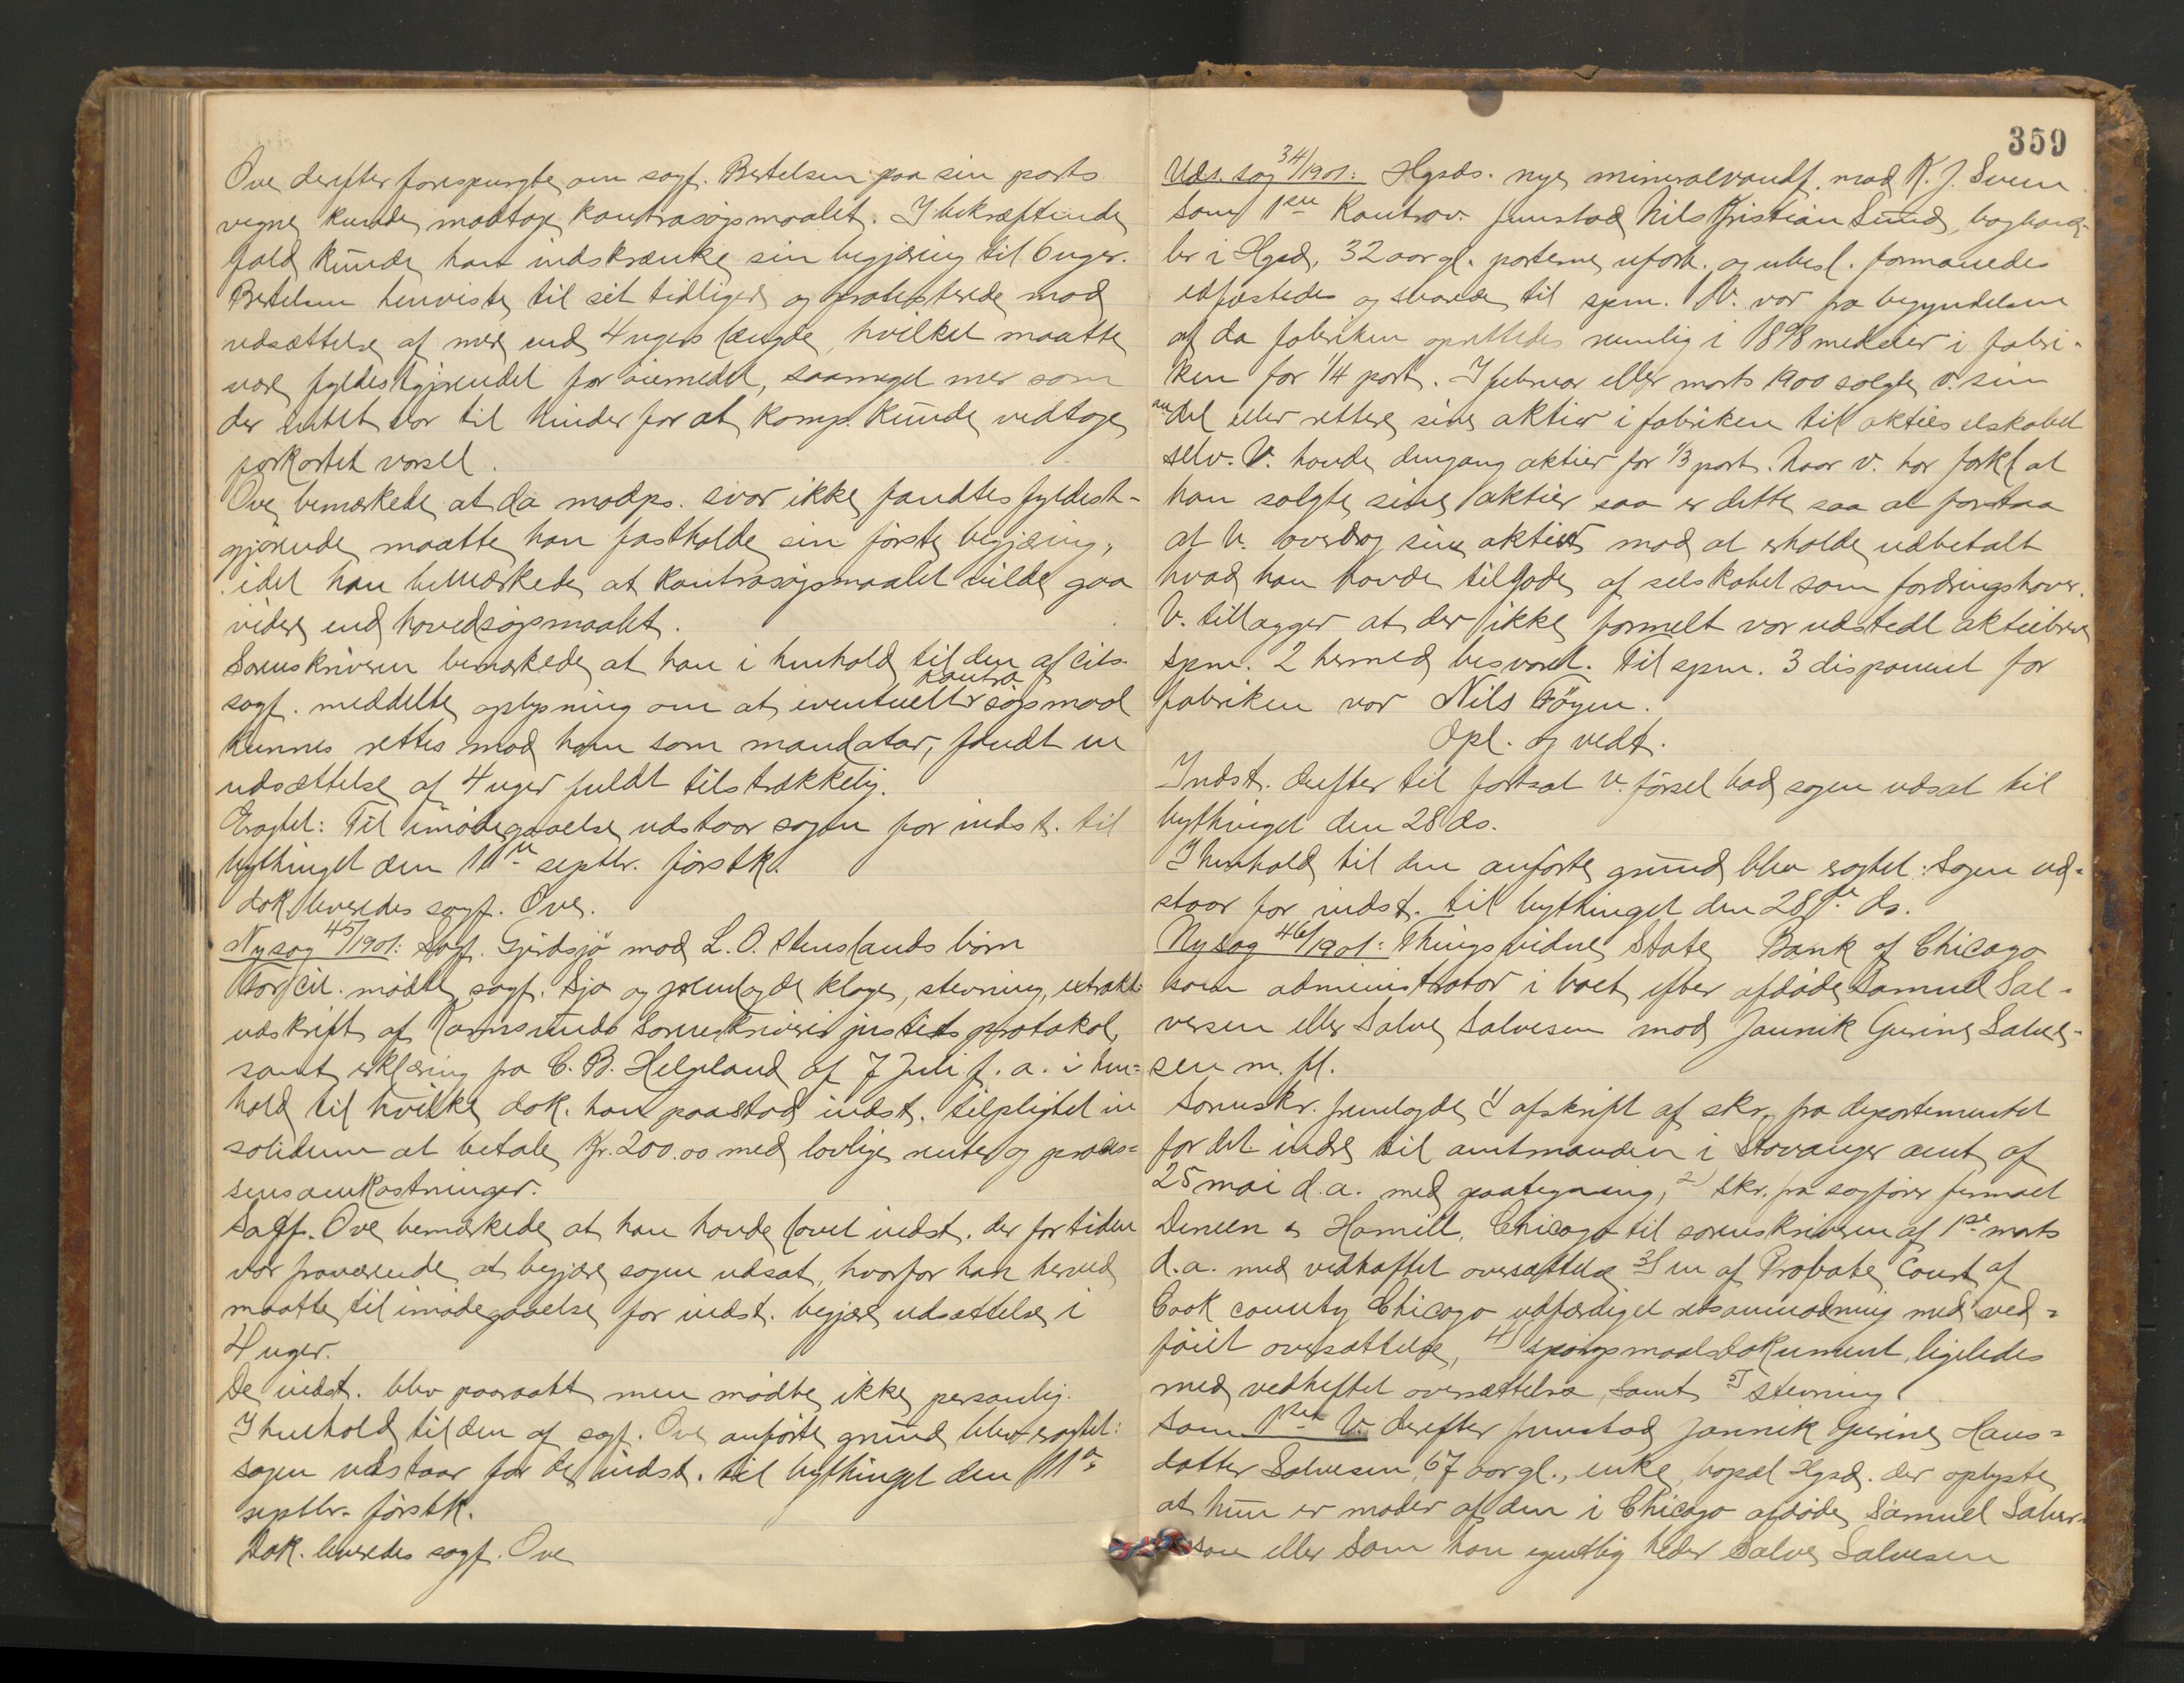 Ove derefter forespurgte om sagf. Bertelsen paa sin parts
vegne kunde modtage kontrasøgsmaalet. I bekræftende
fald kunde han indskrænke sin begjæring til 6 uger.
Bertelsen henviste til sit tidligere og protesterede mod
udsættelse af mer end 4 ugers længde, hvilket maatte
være fyldestgjørendet for øiemedet, saameget mer som
der intet var til hinder for at komp. kunde vedtage
forkortet varsel.
Ove bemærkede at da modps. svar ikke fandtes fyldest-
gjørende maatte han fastholde sin første begjæring,
idet han bemærkede at kontrasøgsmaalet vilde gaa
videre end hovedsøgsmaalet.
Sorenskriveren bemærkede at han i henhold til den af cits.
kontra
sagf. meddelte oplysning om at eventuelt søgsmaal
kunnes rettes mod ham som mandatar, fandt en
udsættelse af 4 uger fuldt tilstrækkelig.
Eragtet: Til imødegaaelse udstaar sagen for indst. til
bythinget den 11te septbr. førstk.
dok. leveredes sagf. Ove.
Ny sag 45/1901: Sagf. Gjerdsjø mod L. O. Stenslands børn
For cit. mødte sagf. Sjø og fremlagde klage, stevning, extrakt-
udskrift af Karmsunds sorenskriveris justitsprotokol,
samt erklæring fra C. B. Helgeland af 7 Juli f. a. i hen-
hold til hvilke dok. han paastod indst. tilpligtet in
solidum at betale Kr. 200.00 med lovlige renter og proces-
sensomkostninger.
Sagf. Ove bemærkede at han havde lovet indst. der for tiden
var fraværende at begjære sagen udsat, hvorfor han herved
maatte til imødegaaelse for indst. begjære udsættelse i
4 uger.
De indst. blev paaraabt men mødte ikke personlig.
I henhold til den af sagf. Ove anførte grund blev eragtet:
sagen udstaar for de indst. til bythinget den 11te
septbr. førstk.
Dok. leveredes sagf. Ove
359
Uds. sag 34/1901: Hgsds. nye mineralvandf. mod K. J. Svem
Som 1ste Kontrav. fremstod Nils Kristian Sund, boghand-
ler i Hgsd, 32 aar gl. parterne ubesl. formanedes
edfæstedes og svarede til spm. 1. V. var fra begyndelsen
af da fabriken oprettedes nemlig i 1898 medeier i fabri-
ken for 1/4 part. I februar eller marts 1900 solgte v. sin
andel eller rettere sine aktier i fabriken til aktieselskabet
selv. V. havde dengang aktier for 1/3 part. Naar v. har forkl. at
han solgte sine aktier saa er dette saa at forstaa
at v. overdrog sine aktier mod at erholde udbetalt
hvad han havde tilgode af selskabet som fordringshaver.
V. tillægger at der ikke formelt var udstedt aktiebreve
spm. 2 hermed besvaret. Til spm. 3 disponent for
fabriken var Nils Føyen.
Opl. og vedt.
Indst. derefter til fortsat v. førsel bad sagen udsat til
bythinget den 28 ds.
I henhold til den anførte grund blev eragtet: Sagen ud-
staar for indst. til bythinget den 28de ds.
Ny sag 46/1901: Thingsvidne State Bank of Chicago
som administrator i boet efter afdøde Samuel Sal-
versen eller Salve Salvesen mod Jannik Gurine Salve-
sen m. fl.
Sorenskr. fremlagde 1) afskrift af skr. fra departementet
for det indre til amtmanden i Stavanger amt af
25 mai d. a. med paategning, 2) skr. fra sagfører firmaet
Deneen & Hamill, Chicago til sorenskriveren af 1ste marts
d. a. med vedhæftet oversættelse 3) en af Probate Court of
Cook county Chicago udfærdiget retsanmodning med ved-
føiet oversættelse, 4) spørgsmaalsdokument ligeledes
med vedheftet oversættelse, samt 5) stevning.
Som 1ste V. derefter fremstod Jannik Gurine Hans-
datter Salvesen, 67 aar gl., enke, bopæl Hgsd. der oplyste
at hun er moder af den i Chicago afdøde Samuel Salver-
sen eller som han egentlig heder Salve Salvesen